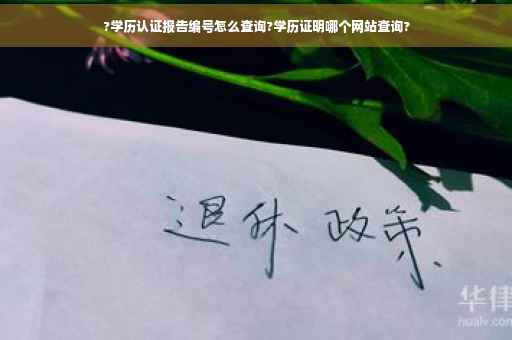 ?学历认证报告编号怎么查询?学历证明哪个网站查询?
退休 政策
华律
hualv.com